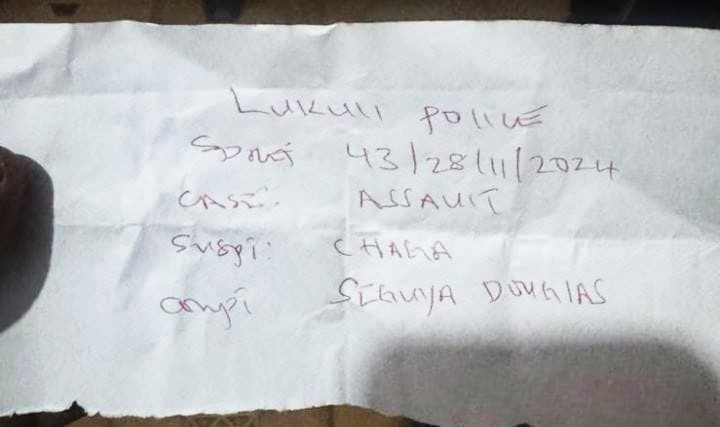 LUKULI POLICE
SDREF 43/28/11/2024
CASE: ASSAULT
SUSPT: CHAGA
COMPT SEGUYA DOUGLAS